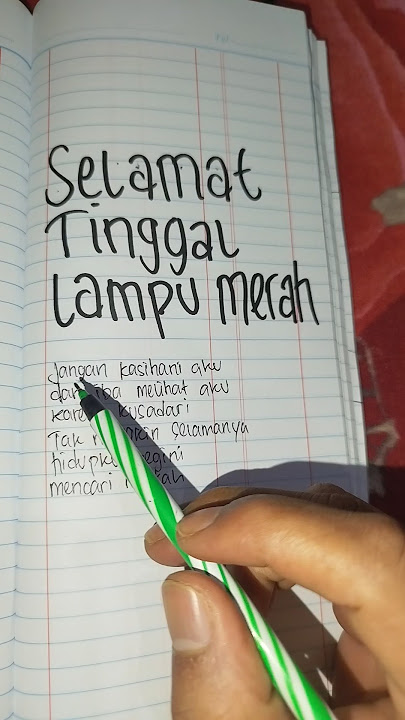 Selamat
Tinggal
Lampu merah
Jangan kasihani aku
iba melihat aku
kusadari
Tak selamanya
hidupku begini
mencari